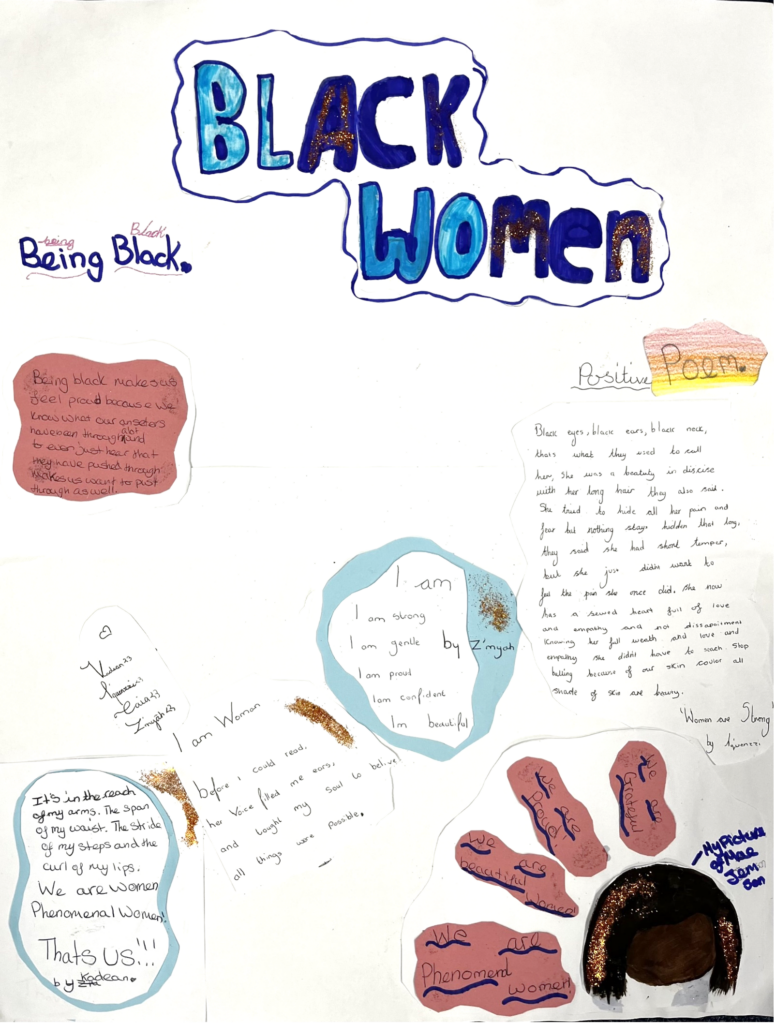 BLACK
WOMEN
being Black
Being Black.
Being black makes us
feel proud because we
know what our ansesters
have been through abt and
to even just hear that
they have pushed through
makes us want to push
through as well.
Positive Poem.
Black eyes, black ears, black neck,
thats what they used to call
her, She was a beatuty in discise
with her long hair they also said.
She tried to hide all her pain and
fear but nothing stays hidden that long,
they said she had short temper,
but she just didnt want to
feel the pain she once did. She now
has a sewed heart full of love
and empathy and not dissapointment
Knowing her full wealth and love and
empathy she didnt have to seach. Stop
hating because of our skin colour all
shade of skin are beauty.
"Women are Strong"
by
I am
I am strong
I am gentle
I am proud
I am confident
Im beautiful
by Z'nyah
Znyah
I am Woman
before i could read,
her voice filled me ears,
and taught my Soul to belive
all things were possible.
It's in the reach
of my arms. The span
of my waist. The stride
of my steps and the
curl of my lips.
We are women
Phenomenal Women!
Thats US!!!
by Kadean.
We are
Proud
We are
Grateful
We are
beautiful
Women
We are
Phenomenal
women!
My Picture
of Mae
Jem
son